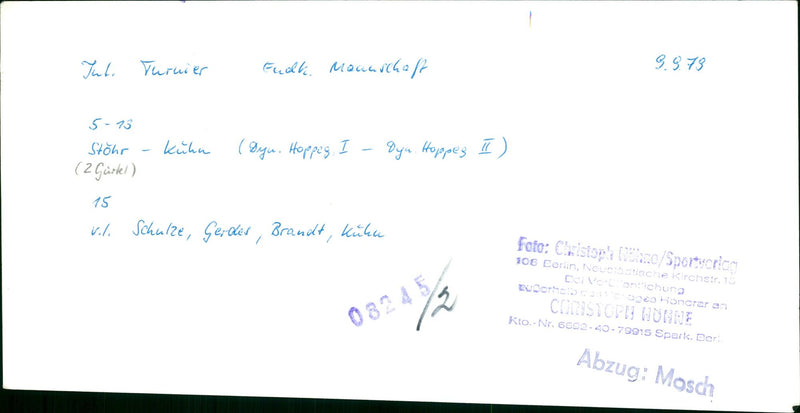 Int. Turnier Endk. Mannschaft 9.9.79
5-13
Stöhr - Kühn (Dyn. Hoppeg. I - Dyn. Hoppeg II)
(2 Gürtel)
15
v.l. Schulze, Gerdes, Brandt, Kühn
Foto: Christoph Höhne/Sportverlag
108 Berlin, Neustädtische Kirchstr. 15
Bei Veröffentlichung
außerhalb des Verlages Honorar an
CHRISTOPH HÖHNE
Kto.-Nr. 6692-40-79915 Spark. Berl.
08245/2
Abzug: Mosch